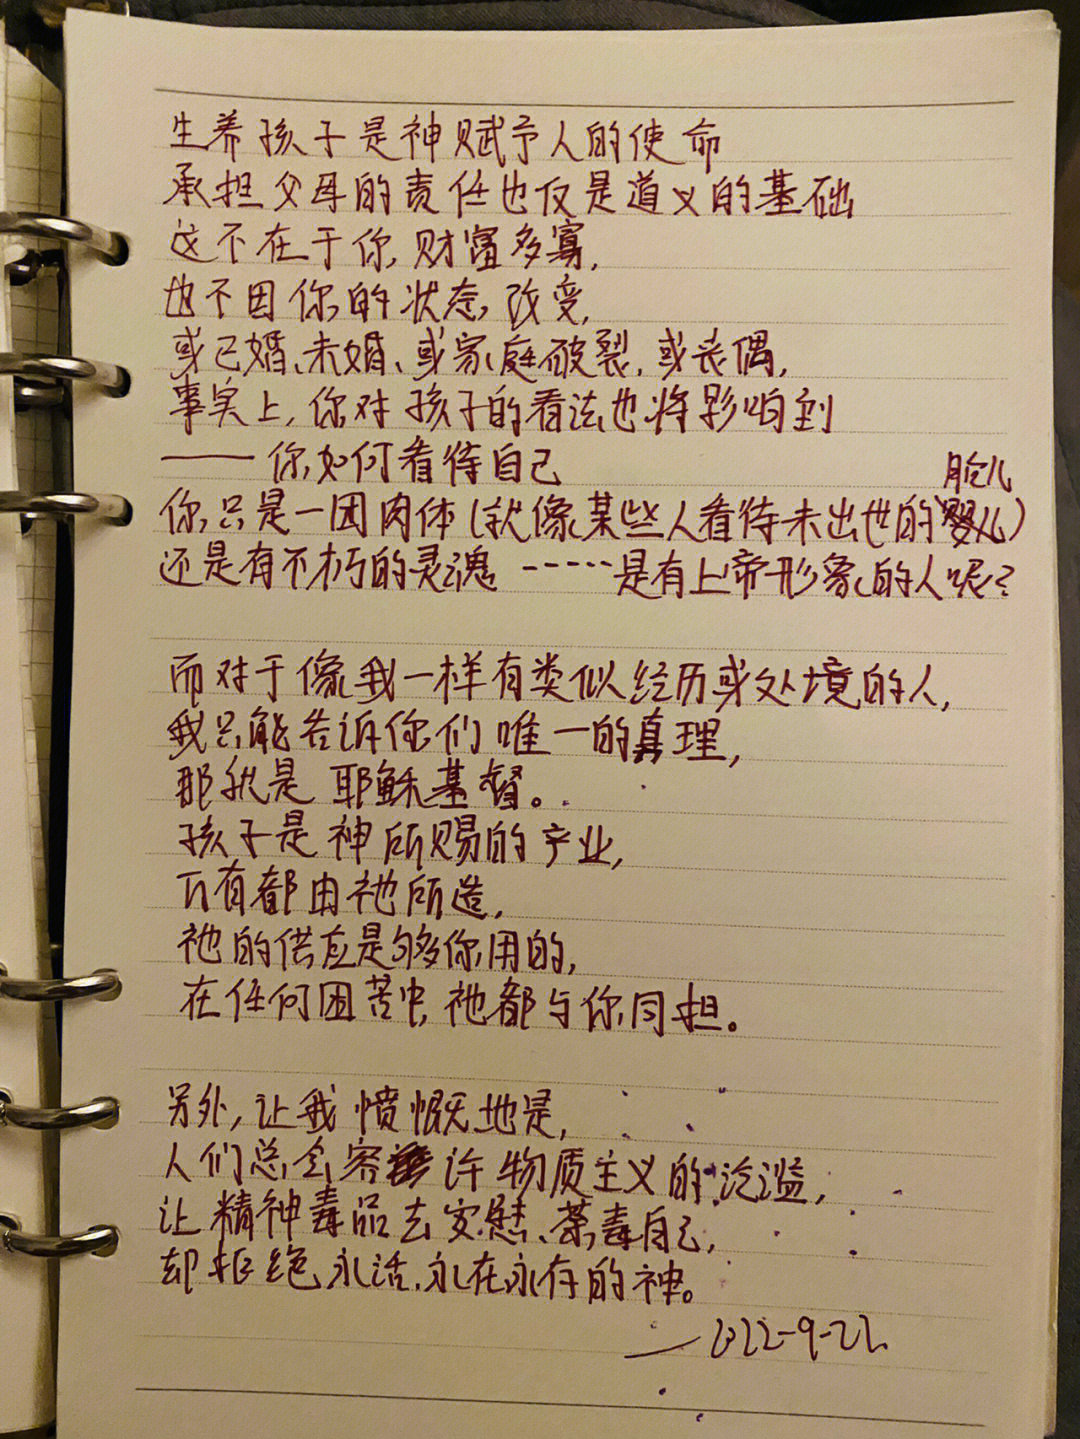 生养孩子是神赋予人的使命
承担父母的责任也仅是道义的基础
这不在于你财富多寡,
也不因你的状态改变,
或已婚、未婚、或家庭破裂,或丧偶,
事实上,你对孩子的看法也将影响到
——你如何看待自己
胎儿
你只是一团肉体(就像某些人看待未出世的)
还是有不朽的灵魂 ······是有上帝形象的人呢?
而对于像我一样有类似经历或处境的人,
我只能告诉你们唯一的真理,
那就是耶稣基督。
孩子是神所赐的产业,
万有都由祂所造,
祂的供应是够你用的,
在任何困苦中,祂都与你同担。
另外,让我愤慨地是,
人们总会容许物质主义的泛滥,
让精神毒品去安慰、荼毒自己,
却拒绝永活、永在永存的神。